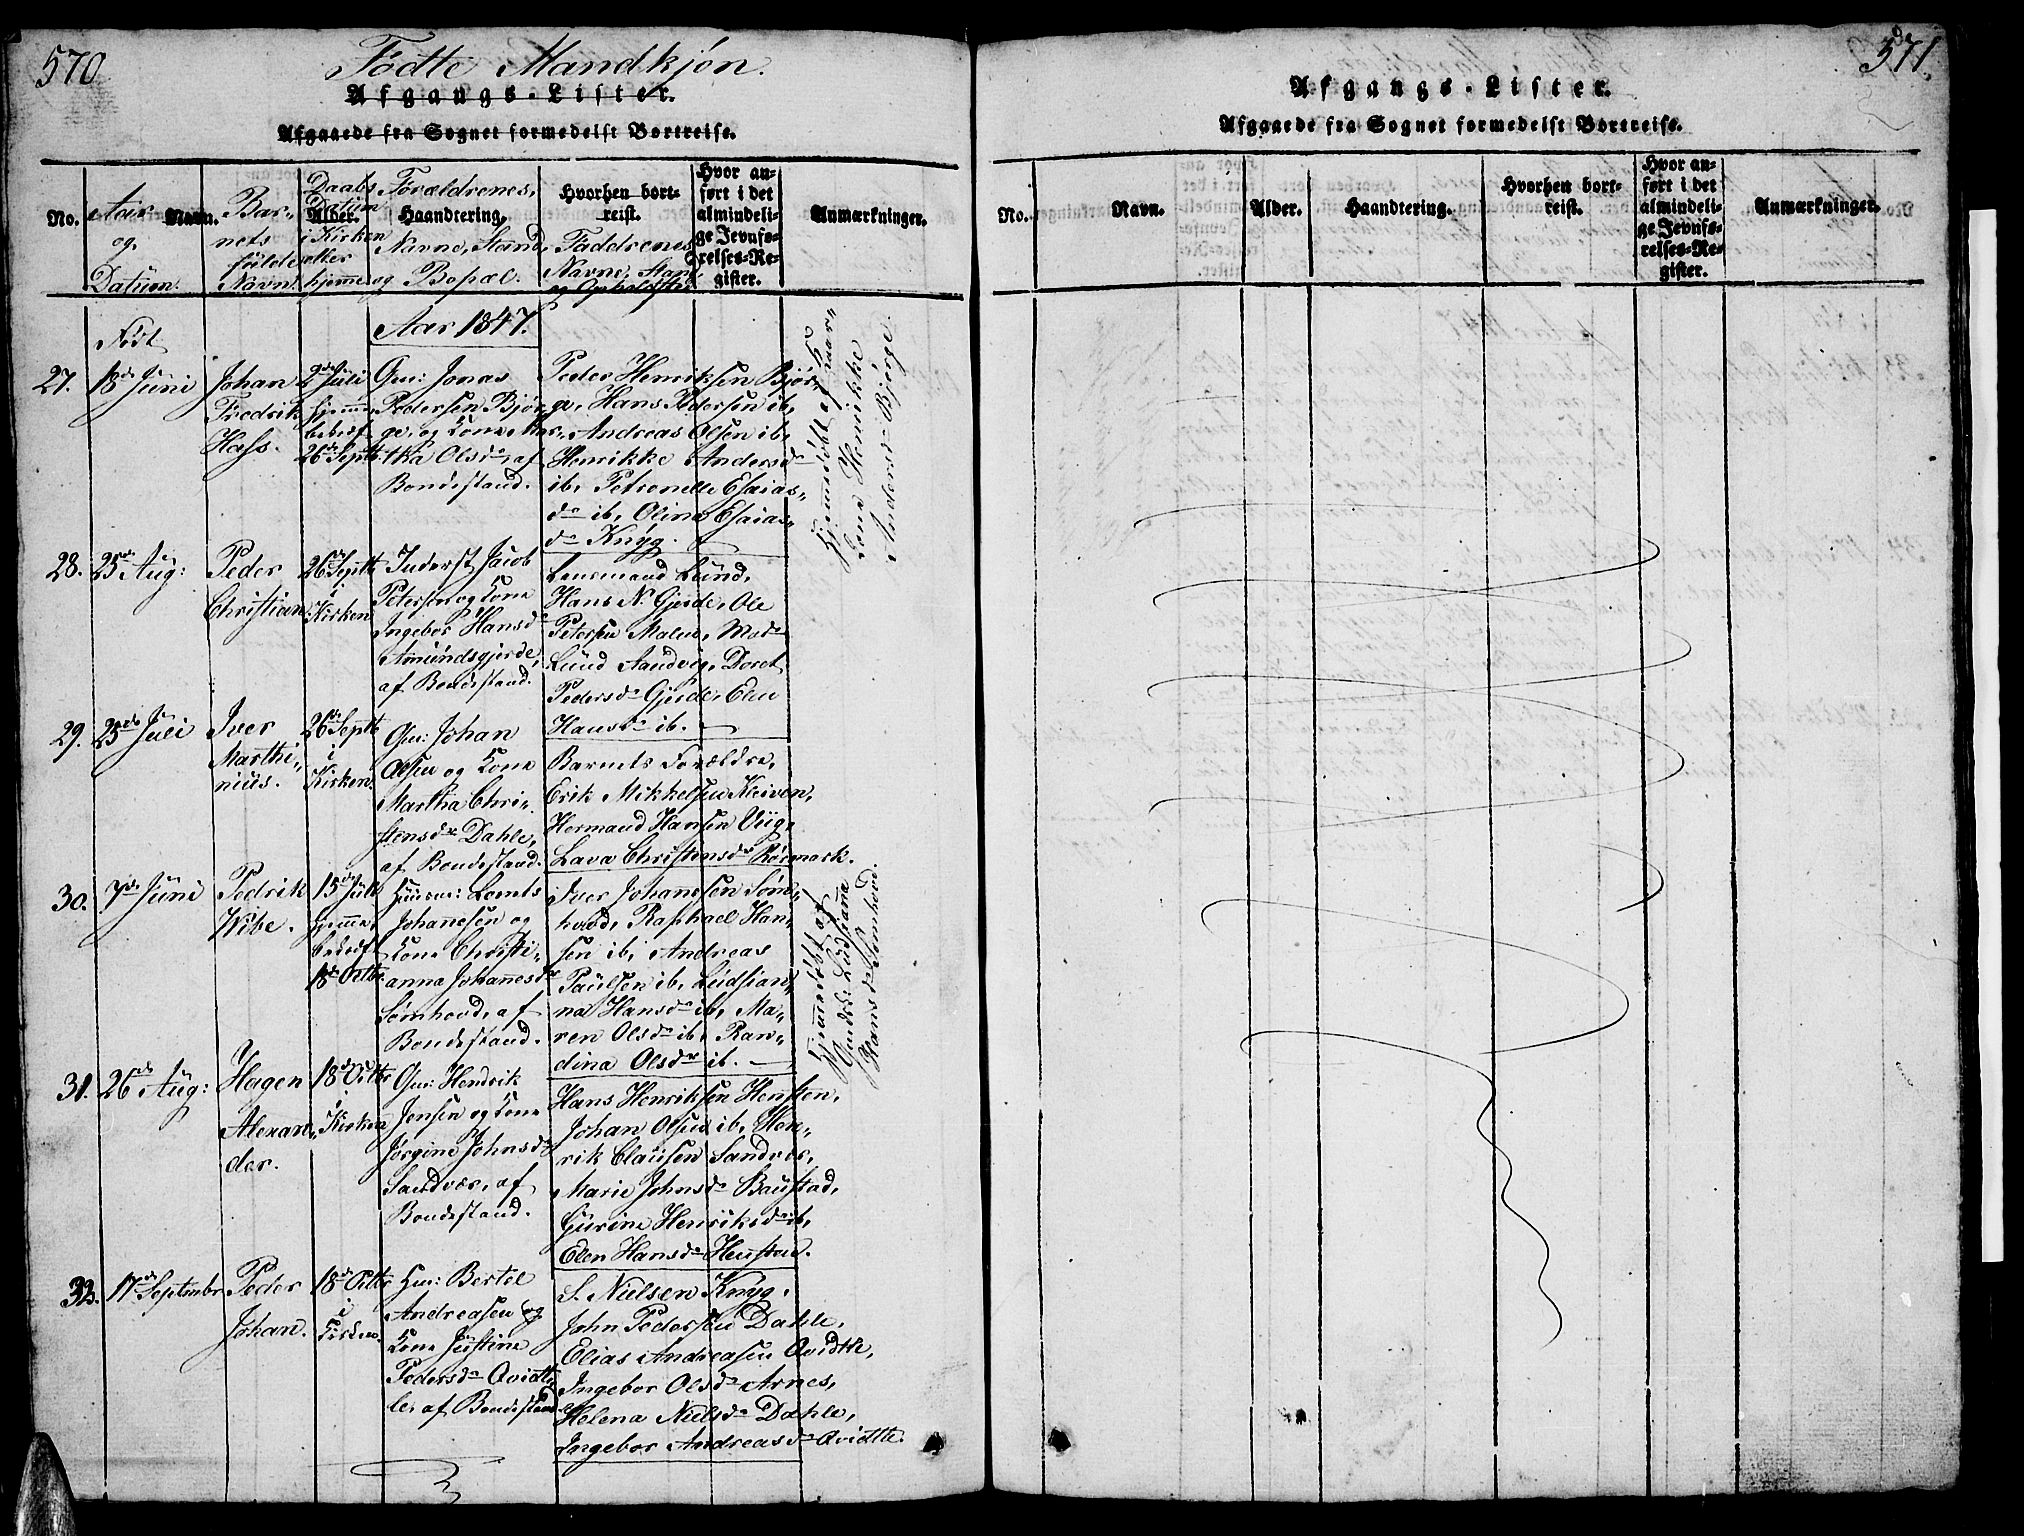 570
Fødte Mandkjøn.
Afgangs-Lister.
Afgaaede fra Sognet formedelst Bortreise.
No.
Aar
og
Datum.
Navn.
Bar-
nets
fulde
Navn.
Daabs
Datum
Alder.
i Kirken
eller
hjemme
Forældrenes,
Haandtering.
Navne, Stand,
og Bopæl.
Hvorhen bort-
reist.
Faddrenes
Navne, Stand
og Opholdssted
Hvor an-
ført i det
almindeli-
ge Jevnfø-
relses-Re-
gister.
Anmærkninger.
Aar 1847.
Født
27.
18de Juni
Johan
Fredrik
Hass.
2de Juli
hjemme,
bekræf
26de Septb
Gm: Jonas
Pedersen Bjør-
ge, og Kone Mar-
tha Olsdr af
Bondestand.
Peder Henriksen Bjør-
ge, Hans Pedersen ib,
Andreas Olsen ib,
Henrikke Andersdr
ib, Petronelle Esaias-
dr ib, Olina Esaias-
dr Knyg.
Hjemmedøbt af Gaar-
Kone Henrikke
Andersdr Bjørge.
28.
25de Aug:
Peder
Christian.
26de Septb
i
Kirken
Inderst Jacob
Petersen og Kone
Ingebor Hansdr
Amundsgjerde,
af Bondestand.
Lensmand Lund,
Hans N. Gjerde, Ole
Petersen Malen, Mad
Lund Sandvig, Doret
Pedersdr Gjerde, Elen
Hansdr ib.
29.
25de Juli
Iver
Marthi-
nius.
26de Septb
i
Kirken.
Gm: Johan
Olsen og Kone
Martha Chri-
stensdr Dahle,
af Bondestand.
Barnets Forældre,
Erik Mikkelsen Kleiven,
Hermand Hansen Viig,
Lava Christensdr Rørmark.
30.
7de Juni
Pedrik
Wibe.
15de Juli
hjemme,
bekræf
18de Octbr
Huusm: Lemts
Johannesen og
Kone Christi-
anna Johannesdr
Sømhovd, af
Bondestand.
Iver Johannesen Søm-
hovd, Raphael Han-
sen ib, Andreas
Paulsen ib, Ludsian-
na Hansdr ib, Ma-
ren Olsdr ib, Ran-
dina Olsdr ib.
Hjemmedøbt af
Ludsianna
Hansdr Sømhovd.
31.
26de Aug:
Hagen
Alexan-
der.
18de Octbr
i
Kirken
Gm: Hendrik
Jensen og Kone
Jørgine Johnsdr
Sandvær, af
Bondestand.
Hans Henriksen Hensten,
Johan Olsen ib, Hen-
rik Clausen Sandvær,
Marie Johnsdr Baustad,
Gurine Henriksdr ib,
Elen Hansdr Henstad.
32.
17de Septmbr
Peder
Johan.
18de Octbr
i
Kirken.
Hm: Bertel
Andreasen og
Kone Justine
Pedersdr Qvidt-
le, af Bondestand
S. Nielsen Knyg,
John Pedersen Dahle,
Elias Andreasen Qvidtle,
Ingebor Olsdr Arnes,
Helena Nielsdr Dahle,
Ingebor Andreasdr Qvidtle.
571.
Afgangs-Lister.
Afgaaede fra Sognet formedelst Bortreise.
No.
Navn.
Alder.
Haandtering.
Hvorhen bort-
reist.
Hvor an-
ført i det
almindeli-
ge Jevnfø-
relses-Re-
gister.
Anmærkninger.